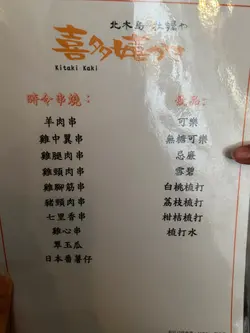 北木島 牡蠣小
喜多嘻
Kitaki Kaki
時令串燒：
羊肉串
雞中翼串
雞腿肉串
雞頸肉串
雞腳筋串
豬頸肉串
七里香串
雞心串
翠玉瓜
日本番薯仔
飲品：
可樂
無糖可樂
忌廉
雪碧
白桃梳打
荔枝梳打
柑桔梳打
梳打水